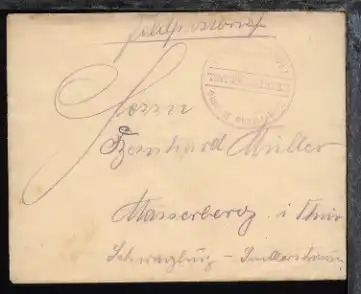 Feldpostbrief
Herrn
Bernhard Müller
Masserberg i. Thür
Schwarzburg - Sondershausen